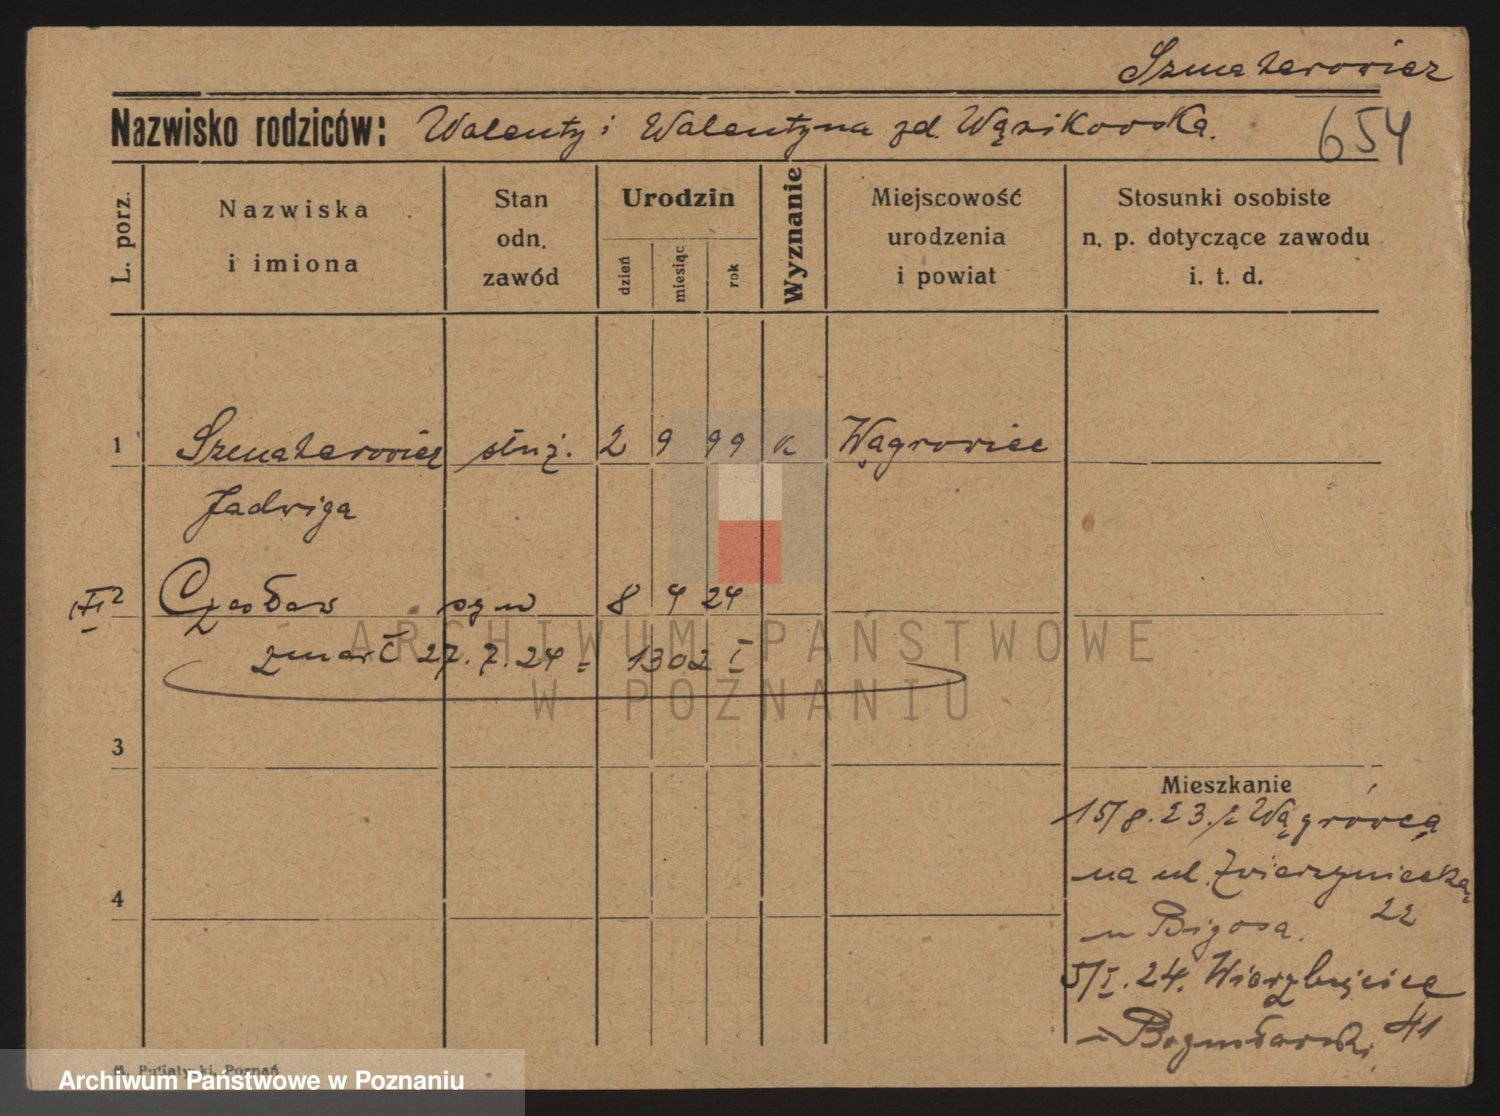 Szmaterowicz
Nazwisko rodziców: Walenty i Walentyna zd. Wąsikowska.
654
L. porz.
Nazwiska
i imiona
Stan
odn.
zawód
Urodzin
dzień
miesiąc
rok
Wyznanie
Miejscowość
urodzenia
i powiat
Stosunki osobiste
n. p. dotyczące zawodu
i. t. d.
1 Szmaterowicz służ. 2 9 99 k Wągrowiec
Jadwiga
2 Czesław syn 8 4 24
zmarł 27. 7. 24 = 1302 I
3
4
Mieszkanie
15/8. 23. z Wągrówca
na ul. Zwierzyniecką
22
u Bigosa.
5/I. 24. Wierzbięcice
41
Bogusławski
ARCHIWUM PAŃSTWOWE
W POZNANIU
Poznań
Archiwum Państwowe w Poznaniu